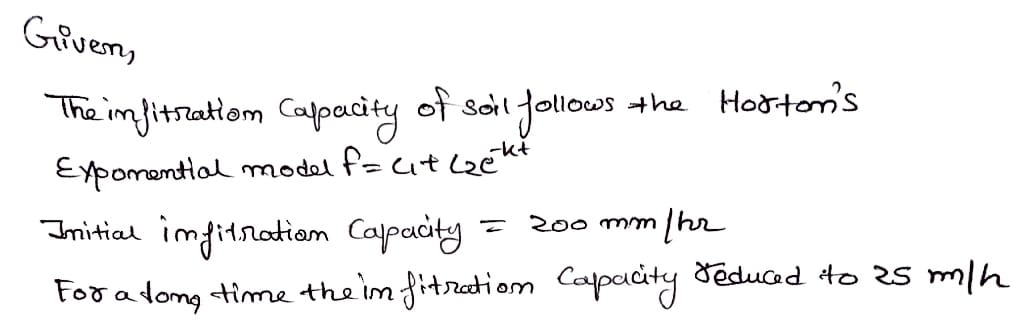 Given,
The infitration Capacity of soil follows the Horton's
Exponential model f = c1 + c2e^-kt
Initial infitration Capacity = 200 mm/hr
For a long time the infitration Capacity reduced to 25 m/h